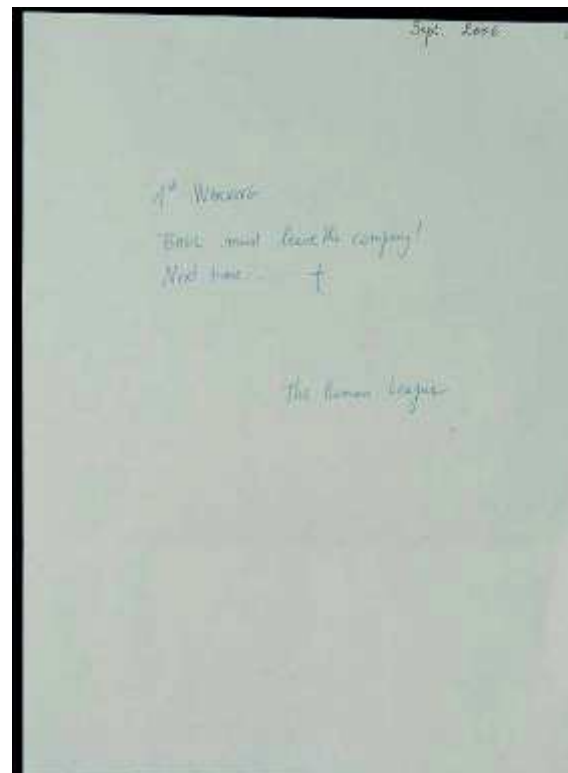 Sept.
1st WARNING
must leave the company!
Next time... †
The Human League